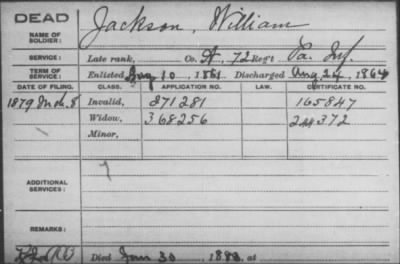 DEAD
Jackson, William
NAME OF SOLDIER:
SERVICE: Late rank, Co. A, 72 Reg't Pa. Inf.
TERM OF SERVICE: Enlisted Aug 10, 1861 Discharged Aug 24, 1864
DATE OF FILING. CLASS. APPLICATION NO. LAW. CERTIFICATE NO.
1879 Mch. 8 Invalid, 271281 165847
Widow, 368256 244372
Minor,
ADDITIONAL SERVICES:
REMARKS:
Died Jan 30, 1888, at